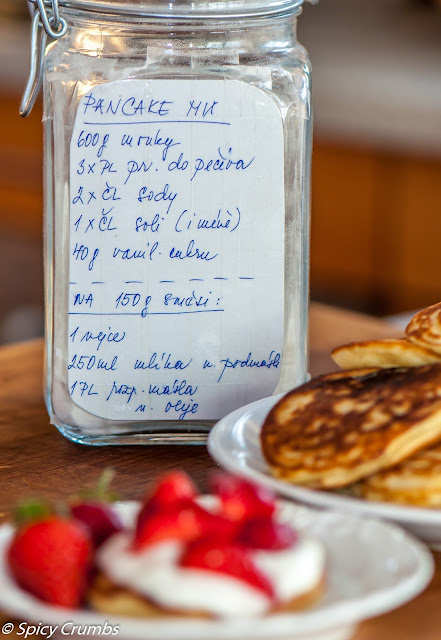 PANCAKE MIX
600g mouky
3xPL pr. do pečiva
2xČL sody
1xČL soli (i méně)
40g vanil. cukru
NA 150g směsi:
1 vejce
250ml mléka n. podmáslí
1PL rozp. másla
n. oleje
© Spicy Crumbs